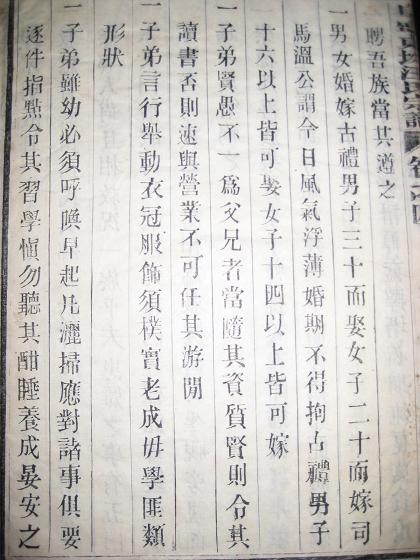 聘吾族當共遵之
一男女婚嫁古禮男子三十而娶女子二十而嫁司
馬溫公謂今日風氣浮薄婚期不得拘古禮男子
十六以上皆可娶女子十四以上皆可嫁
一子弟賢愚不一為父兄者當隨其資質賢則令其
讀書否則速與營業不可任其游閒
一子弟言行舉動衣冠服飾須樸實老成毋學匪類
形狀
一子弟雖幼必須呼喚早起凡灑掃應對諸事俱要
逐件指點令其習學慎勿聽其酣睡養成晏安之